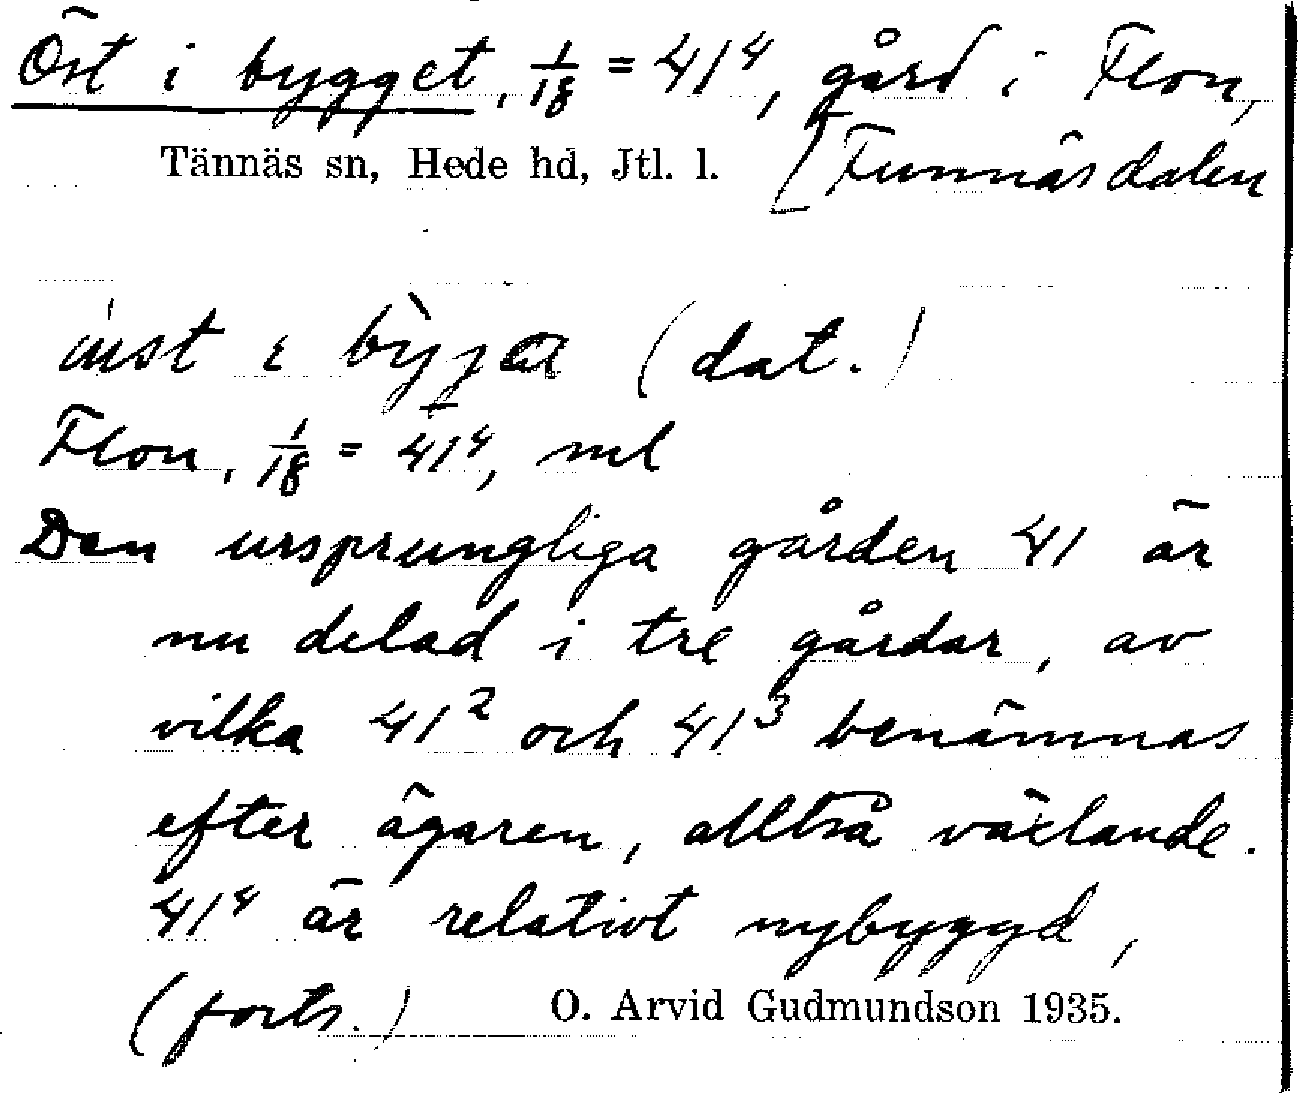 Öst i bygget, 1/18 = 41⁴, gård i Flon,
Tännäs sn, Hede hd, Jtl. l. [Funnäsdalen
i (dat.)
Flon, 1/18 = 41⁴, ml
Den ursprungliga gården 41 är
nu delad i tre gårdar, av
vilka 41² och 41³ benämnas
efter ägaren, alltså växlande.
41⁴ är relativt nybyggd,
(forts.) O. Arvid Gudmundson 1935.